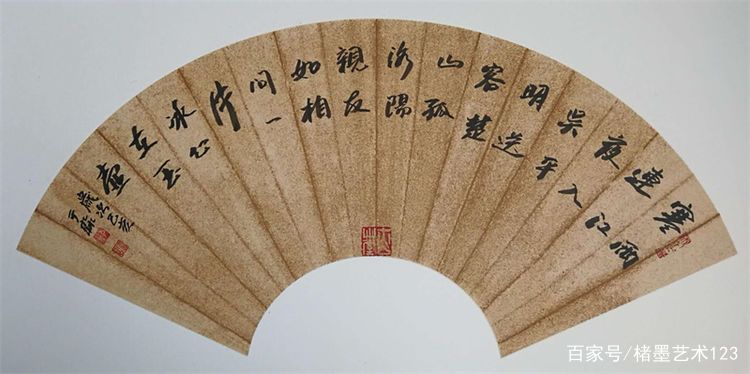 寒雨
連江
夜入
吳平
明送
客楚
山孤
洛陽
親友
如相
問一
片
冰心
在玉
壺
歲次己亥
百家号/楮墨艺术123